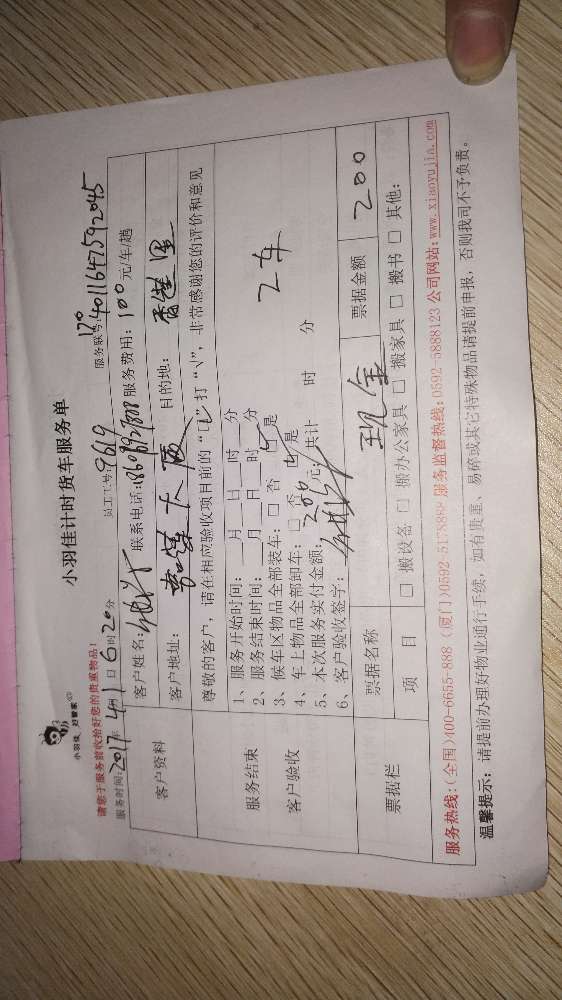 小羽佳 好管家
小羽佳计时货车服务单
请您于服务前收拾好您的贵重物品!
服务时间:2017年4月1日6时20分 员工工号:9619 服务联号:1704011647592045
客户资料
客户姓名: 联系电话:18606892708 服务费用:100元/车/趟
客户地址: 大厦 目的地: 香莲里
尊敬的客户,请在相应验收项目前的“□”打“√”,非常感谢您的评价和意见
服务结束
客户验收
1、服务开始时间: 月 日 时 分
2、服务结束时间: 月 日 时 分
3、候车区物品全部装车:□ 否 ☑是 2车
4、车上物品全部卸车:□ 否 ☑是
5、本次服务实付金额:200元;共计 时 分
6、客户验收签字:
票据栏
票据名称 现金 票据金额 200
项 目 □ 搬设备 □ 搬办公家具 □ 搬家具 □ 搬书 □ 其他:
服务热线:(全国)400-6655-888 (厦门)0592-5178899 服务监督热线:0592-5888123 公司网站:www.xiaoyujia.com
温馨提示:请提前办理好物业通行手续,如有贵重、易碎或其它特殊物品请提前申报,否则我司不予负责。